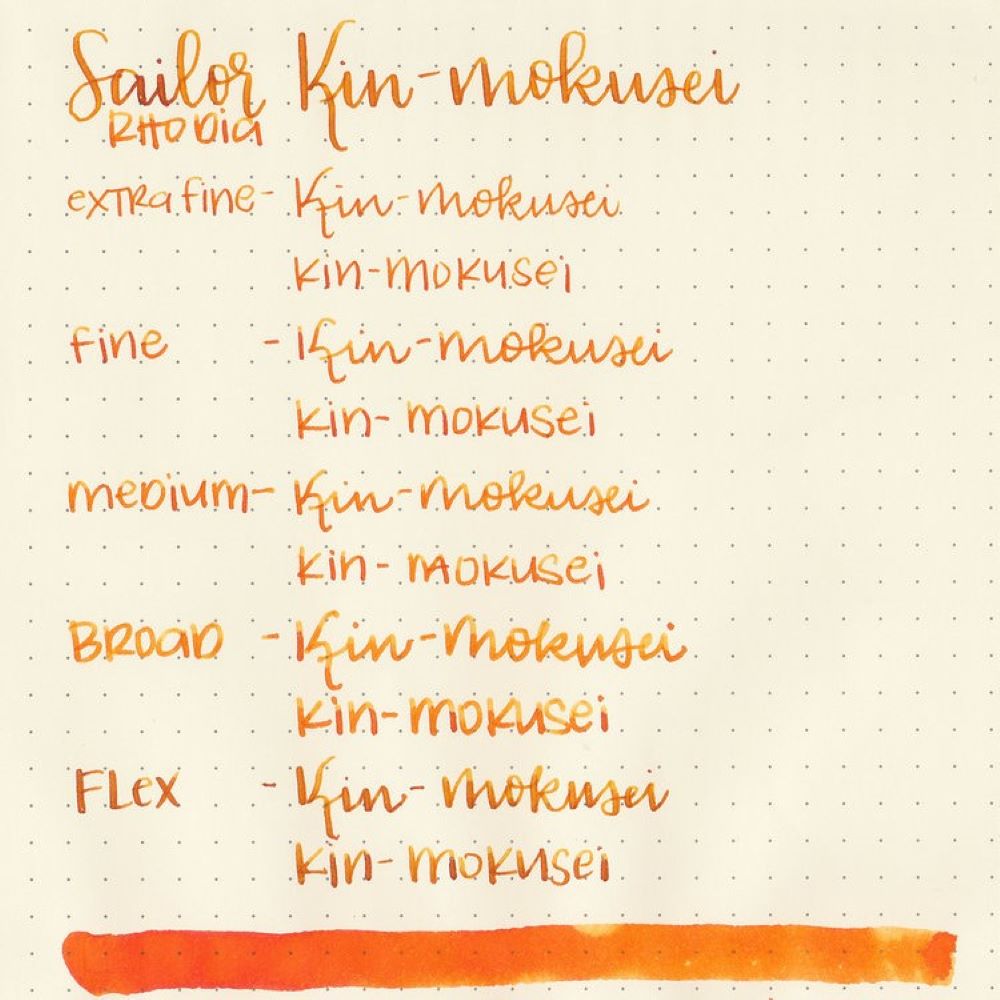 Sailor Kin-mokusei
RHODia
exTRa fine - Kin-mokusei
kin-mokusei
fine - Kin-mokusei
kin-mokusei
meDium - Kin-mokusei
kin-mokusei
BRoaD - Kin-mokusei
kin-mokusei
FLex - Kin-mokusei
kin-mokusei